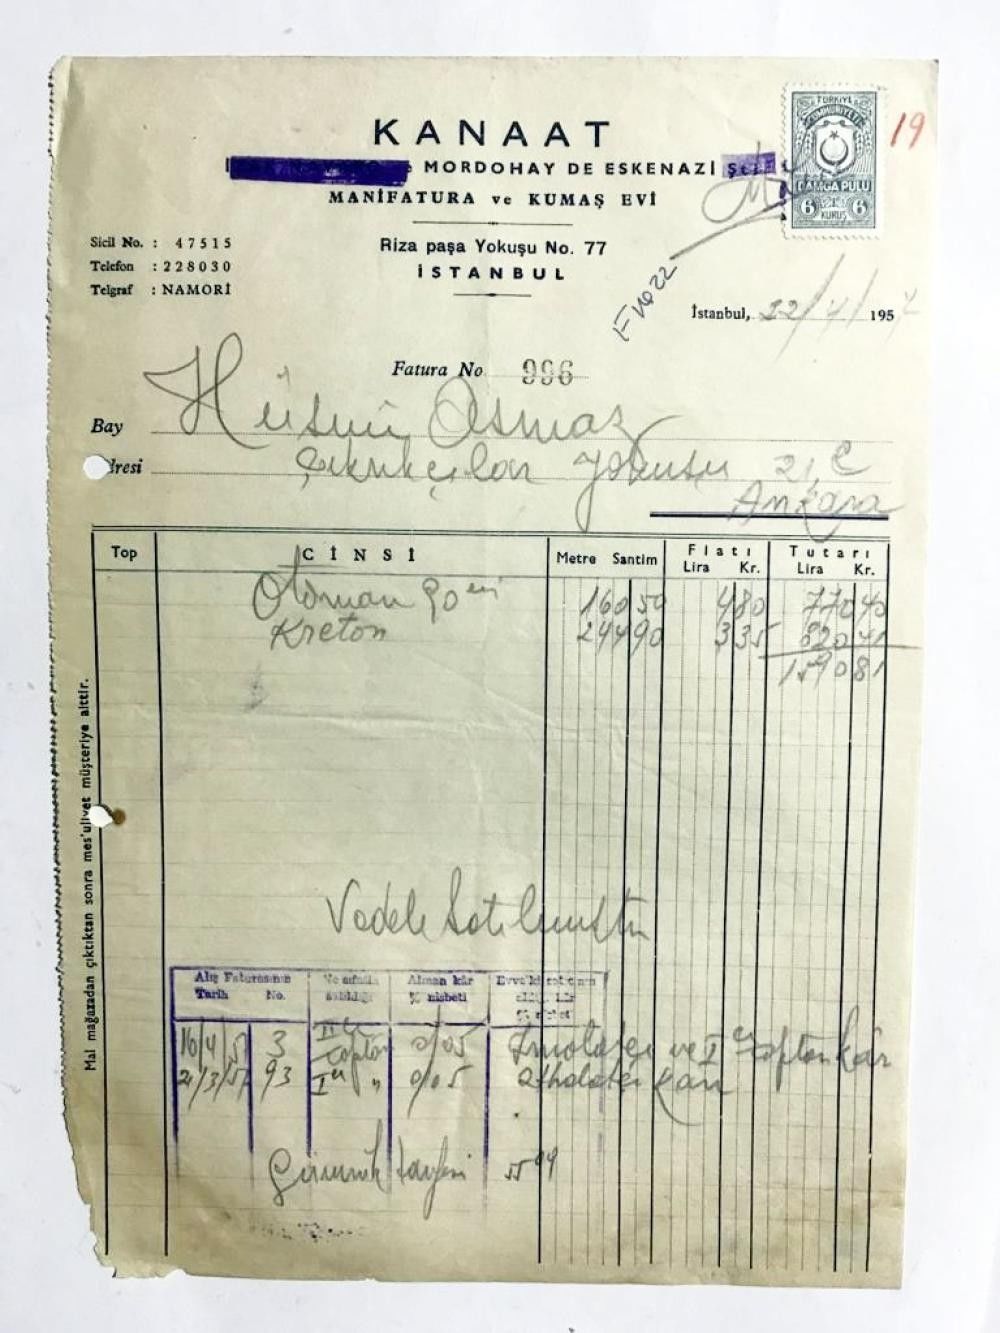 KANAAT
MORDOHAY DE ESKENAZİ
MANİFATURA ve KUMAŞ EVİ
TÜRKİYE
CUMHURİYETİ
DAMGA PULU
6 6
KURUŞ
19
Sicil No. : 47515
Telefon : 228030
Telgraf : NAMORİ
Riza paşa Yokuşu No. 77
İSTANBUL
İstanbul, 22/4/1957
Fatura No 996
Bay Hüsnü Osmaz
dresi Çıkrıkçılar Yokuşu 21/C
Ankara
Top CİNSİ Metre Santim Fiatı Lira Kr. Tutarı Lira Kr.
Otoman 90 160 50 480 770 40
Kreton 244 90 335 820 41
1590 81
Mal mağazadan çıktıktan sonra mes'uliyet müşteriye aittir.
Vadele satılmıştır
Alış Faturasının Tarih No.
Ne sıfatla
Alınan kâr % nisbeti
16/4/57 3 II ci toptan 0/05 İmalatçı ve I ci toptan kâr
21/3/57 93 I ci " 0/05 ithalatçı karı
Gümrük